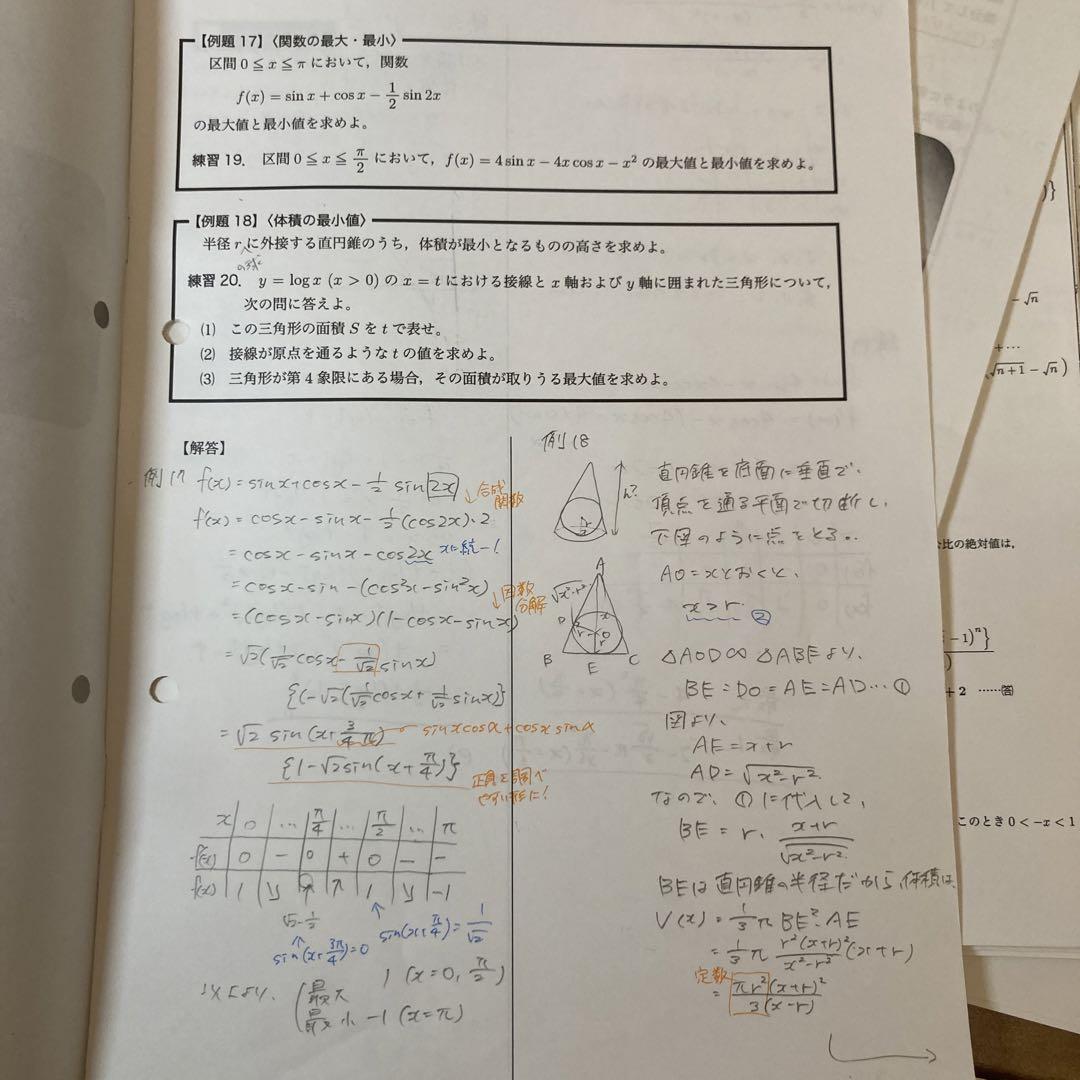 【例題 17】〈関数の最大・最小〉
区間 0 ≦ x ≦ π において，関数
f(x) = sin x + cos x − 1/2 sin 2x
の最大値と最小値を求めよ。
練習 19． 区間 0 ≦ x ≦ π/2 において，f(x) = 4 sin x − 4x cos x − x² の最大値と最小値を求めよ。
【例題 18】〈体積の最小値〉
半径 r に外接する直円錐のうち，体積が最小となるものの高さを求めよ。
の球
練習 20． y = log x (x > 0) の x = t における接線と x 軸および y 軸に囲まれた三角形について，
次の問に答えよ。
(1) この三角形の面積 S を t で表せ。
(2) 接線が原点を通るような t の値を求めよ。
(3) 三角形が第 4 象限にある場合，その面積が取りうる最大値を求めよ。
【解答】
例17 f(x) = sinx + cosx − 1/2 sin 2x
↓合成関数
f'(x) = cosx − sinx − 1/2 (cos2x)·2
= cosx − sinx − cos2x xに統一!
= cosx − sin − (cos²x − sin²x)
↓因数分解
= (cosx − sinx)(1 − cosx − sinx)
= √2(1/√2 cosx − 1/√2 sinx)
{(−√2(1/√2 cosx + 1/√2 sinx)}
= √2 sin(x + 3/4 π) sinxcosα + cosx sinα
{1 − √2 sin(x + π/4)}
正負を調べやすい形に!
x 0 … π/4 … π/2 … π
f'(x) 0 − 0 + 0 − −
f(x) 1 ↘ ↗ 1 ↘ −1
√2 − 1/2
↑ sin(x + 3π/4) = 0
↑ sin(x + π/4) = 1/√2
以上より、
最大 1 (x = 0, π/2)
最小 −1 (x = π)
例18
h?
r
A
√x²−r²
D
x
r
O
r
B E C
直円錐を底面に垂直で、
頂点を通る平面で切断し、
下図のように点をとる。
AO = xとおくと、
x > r ②
△AOD∽△ABEより、
BE = DO = AE = AD … ①
図より、
AE = x + r
AD = √x² − r²
なので、①に代入して、
BE = r · (x + r)/√x² − r²
BEは直円錐の半径だから、体積は、
V(x) = 1/3 π BE² · AE
= 1/3 π r²(x + r)²/(x² − r²) (x + r)
定数
= πr²(x + r)²/3(x − r)
− √n
+ …
√n+1 − √n)
公比の絶対値は，
−1)ⁿ}
+ 2 ……答
このとき 0 < −x < 1